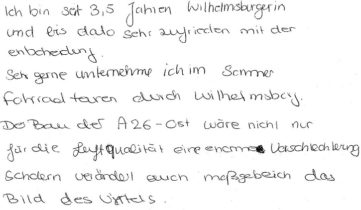 Ich bin seit 3,5 Jahren Wilhelmsburgerin
und bis dato sehr zufrieden mit der
entscheidung.
Sehr gerne unternehme ich im Sommer
Fahrradtouren durch Wilhelmsburg.
Der Bau der A26-Ost wäre nicht nur
für die Luftqualität eine enorme Verschlechterung
sondern verändert auch maßgeblich das
Bild des Viertels.